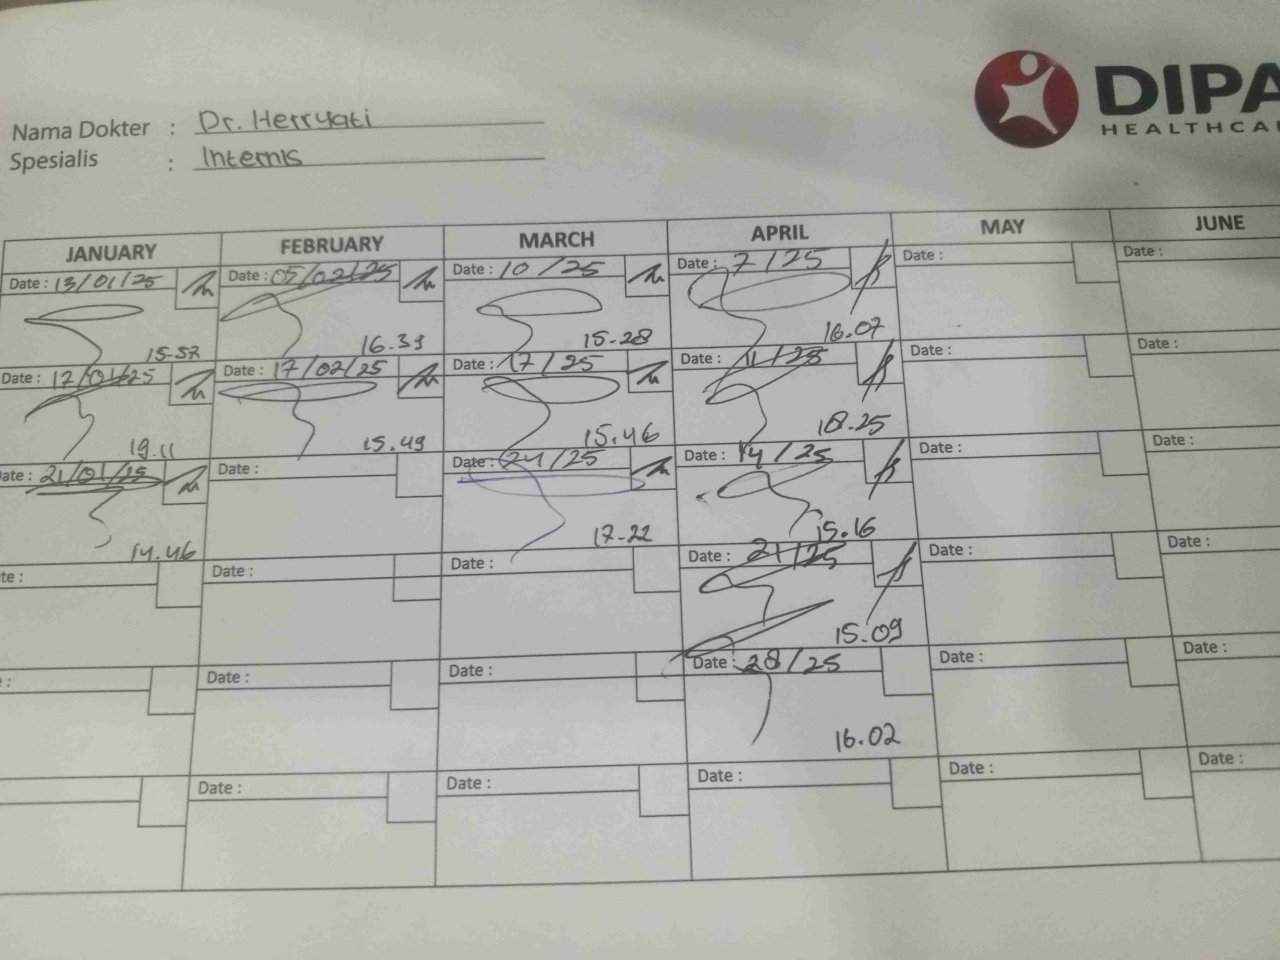 DIPA
HEALTHCA
Nama Dokter : Dr. Herryati
Spesialis : Internis
JANUARY FEBRUARY MARCH APRIL MAY JUNE
Date : 13/01/25 Date : 05/02/25 Date : 10/25 Date : 7/25 Date : Date :
15.57 16.39 15.28 16.07
Date : 17/01/25 Date : 17/02/25 Date : 17/25 Date : 11/25 Date : Date :
19.11 15.49 15.46 18.25
Date : 21/01/25 Date : Date : 24/25 Date : 14/25 Date : Date :
14.46 17.22 15.16
te : Date : Date : Date : 21/25 Date : Date :
15.09
: Date : Date : Date : 28/25 Date : Date :
16.02
Date : Date : Date : Date : Date :